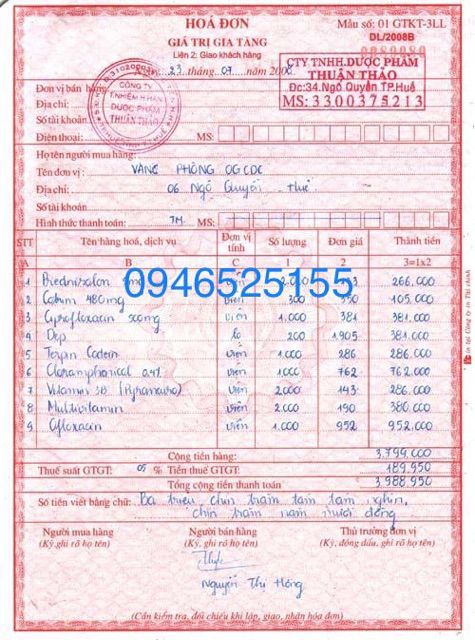 HOÁ ĐƠN
GIÁ TRỊ GIA TĂNG
Liên 2: Giao khách hàng
Mẫu số: 01 GTKT-3LL
DL/2008B
0080080
Ngày 23 tháng 07 năm 2008
CTY TNHH.DƯỢC PHẨM
THUẬN THẢO
Đc:34.Ngô Quyền TP.Huế
MS: 3300375213
CÔNG TY
T.NHIỆM H.HẠN
DƯỢC PHẨM
THUẬN THẢO
Đơn vị bán hàng
Địa chỉ:
Số tài khoản
Điện thoại: MS:
Họ tên người mua hàng:
Tên đơn vị : VĂNG PHÒNG OGCDC
Địa chỉ: 06 Ngô Quyền - Huế
Số tài khoản
Hình thức thanh toán: TM. MS:
STT Tên hàng hoá, dịch vụ Đơn vị tính Số lượng Đơn giá Thành tiền
A B C 1 2 3=1x2
1 Prednisolon 266.000
0946525155
2 480mg viên 300 350 105.000
3 500mg viên 1.000 381 381.000
4 Dep lọ 200 1.905 381.000
5 Terpin Codein viên 1.000 286 286.000
6 Cloramphenical 0.4% 1000 762 762.000
7 Vitamin 3B viên 2000 143 286.000
8 Multivitamin viên 2.000 190 380.000
9 Ofloxacin viên 1.000 952 952.000
Cộng tiền hàng: 3.799.000
Thuế suất GTGT: 05 % Tiền thuế GTGT: 189.950
Tổng cộng tiền thanh toán 3.988.950
Số tiền viết bằng chữ: Ba triệu, chín trăm tám tám nghìn,
chín trăm năm mươi đồng
Người mua hàng Người bán hàng Thủ trưởng đơn vị
(Ký, ghi rõ họ tên) (Ký, ghi rõ họ tên) (Ký, đóng dấu, ghi rõ họ tên)
Nguyễn Thị Hồng
(Cần kiểm tra, đối chiếu khi lập, giao, nhận hóa đơn)